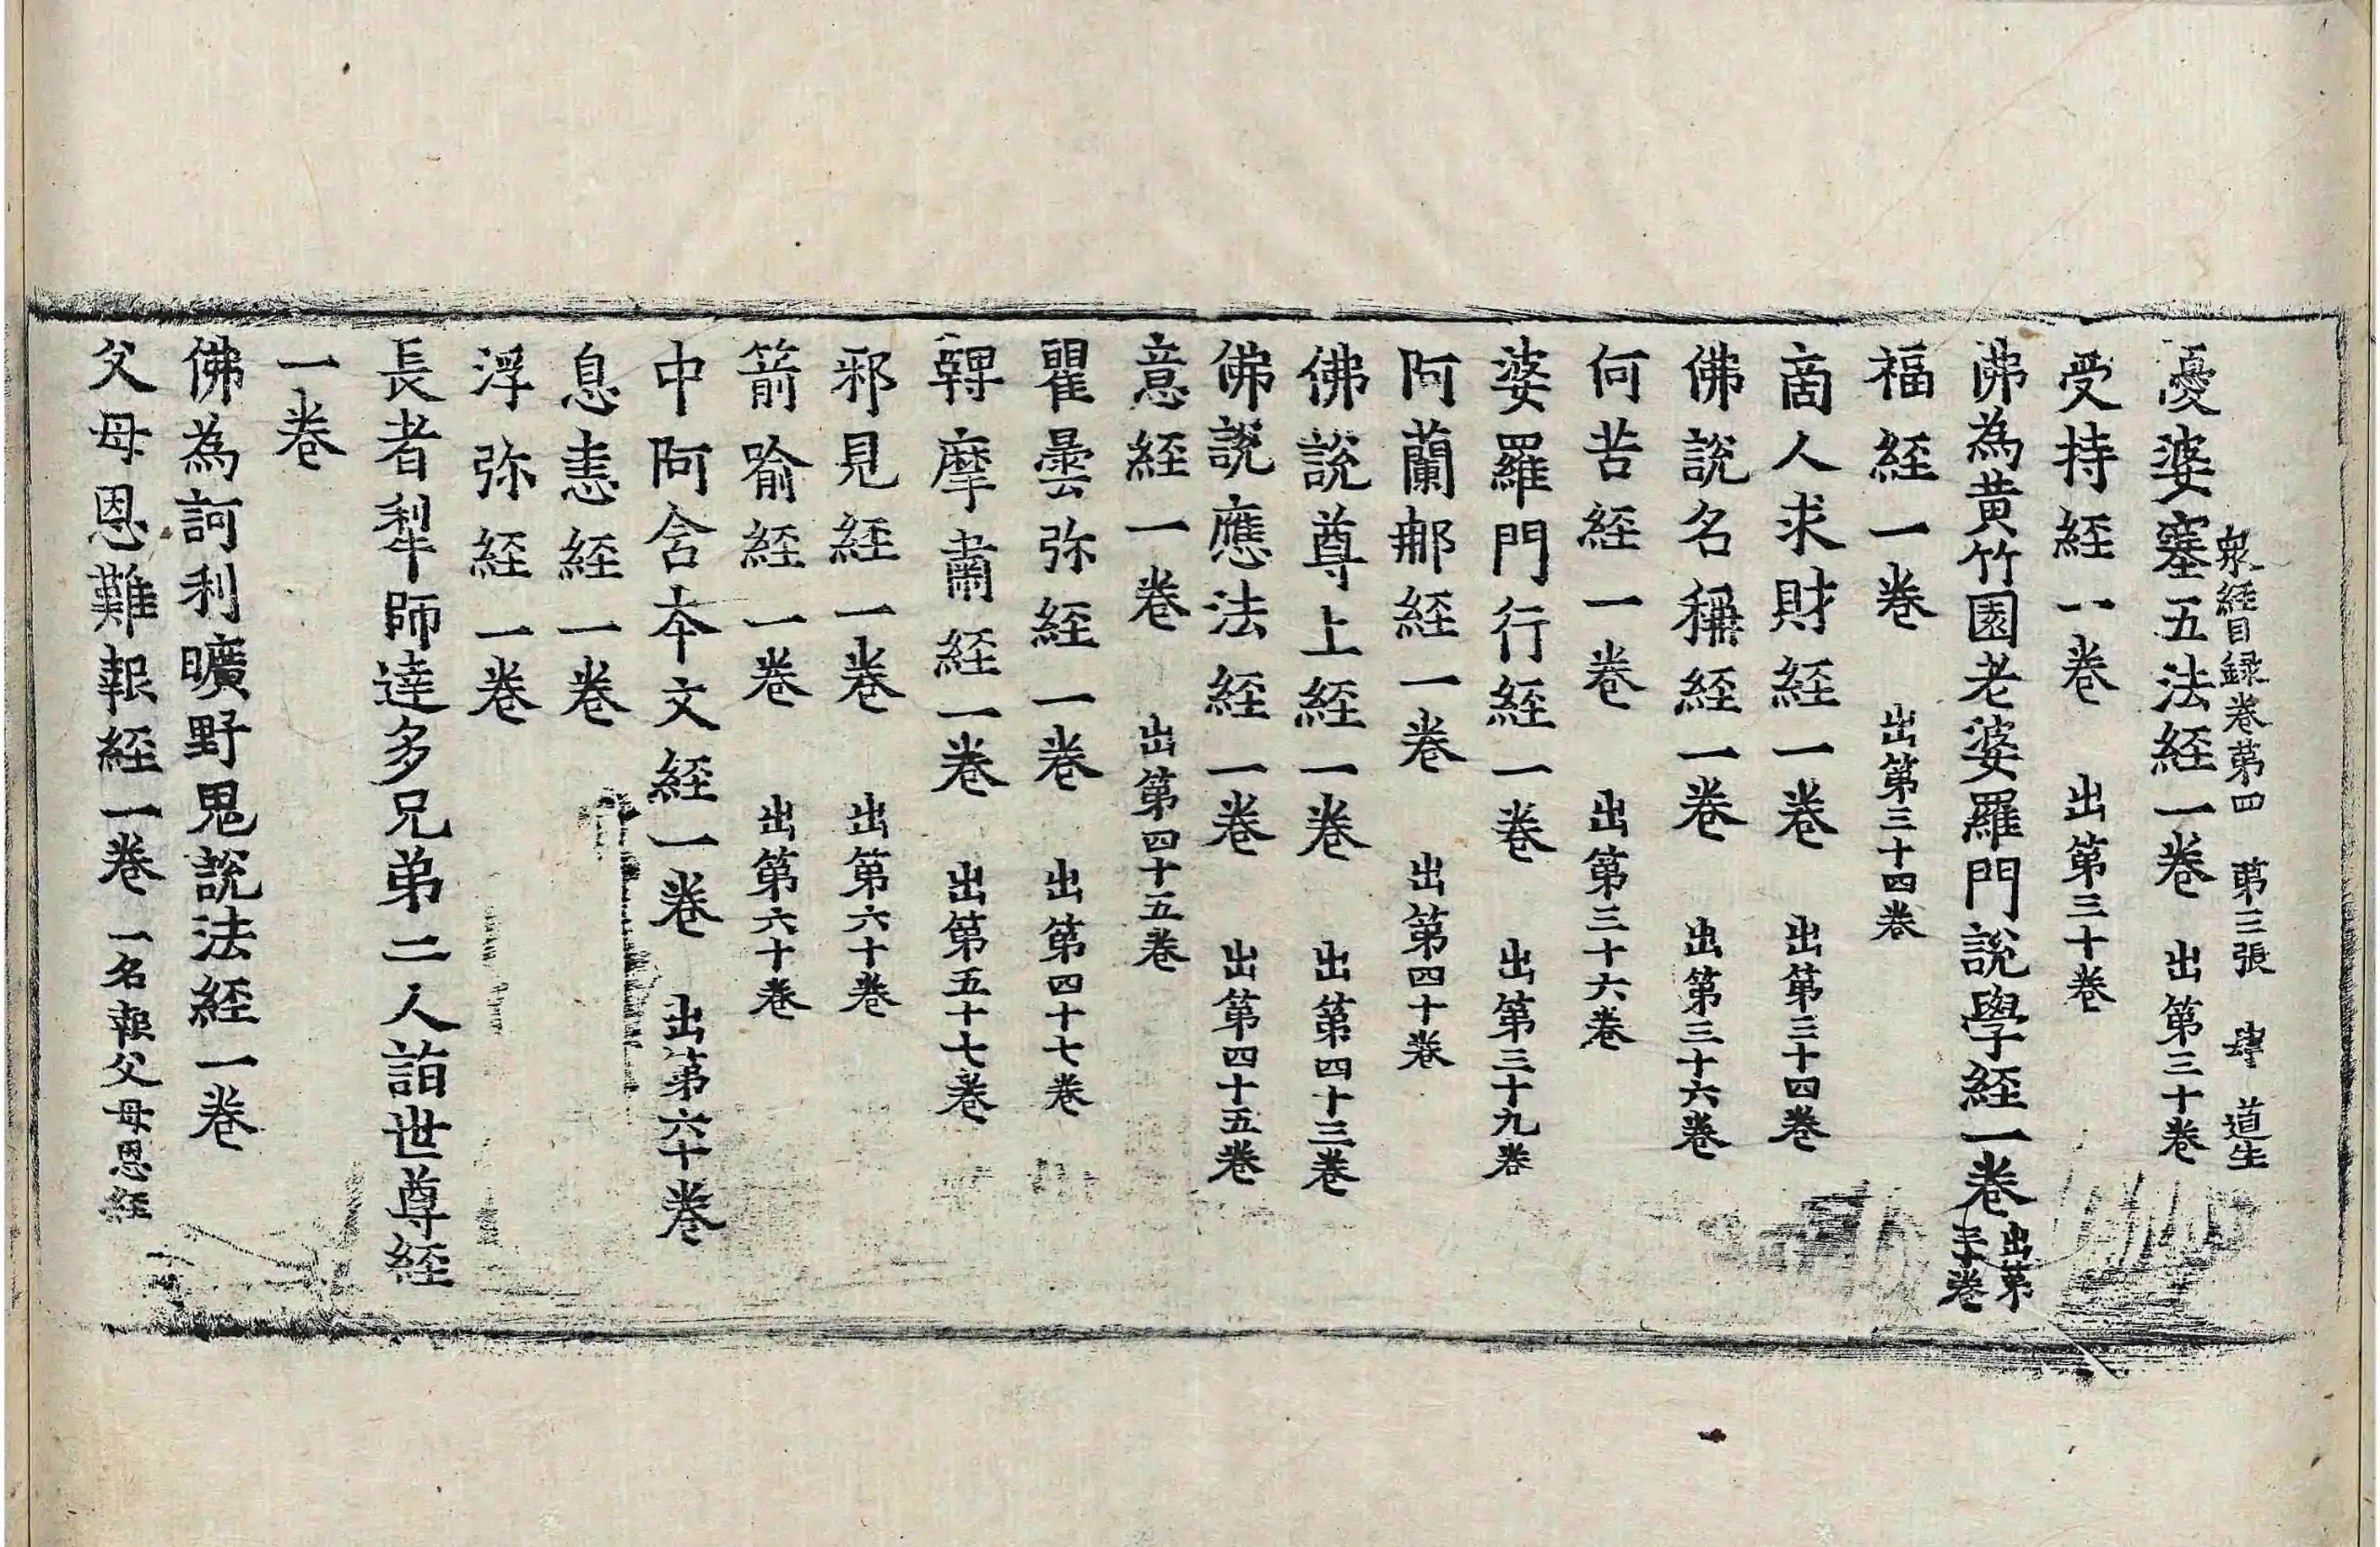 衆經目録卷第四 第三張 肆 道生
憂婆塞五法経一卷 出第三十卷
受持経一卷 出第三十卷
佛為黄竹園老婆羅門說學経一卷 出第三十卷
福経一卷 出第三十四卷
啇人求財経一卷 出第三十四卷
佛說名稱経一卷 出第三十六卷
何苦経一卷 出第三十六卷
婆羅門行経一卷 出第三十九卷
阿蘭那経一卷 出第四十卷
佛說尊上経一卷 出第四十三卷
佛說應法経一卷 出第四十五卷
意経一卷 出第四十五卷
瞿曇弥経一卷 出第四十七卷
鞞摩肅経一卷 出第五十七卷
邪見経一卷 出第六十卷
箭喻経一卷 出第六十卷
中阿含本文経一卷 出第六十卷
息恚経一卷
浮弥経一卷
長者犁師達多兄弟二人詣世尊経
一卷
佛為訶利曠野鬼說法経一卷
父母恩難報経一卷 一名報父母恩経